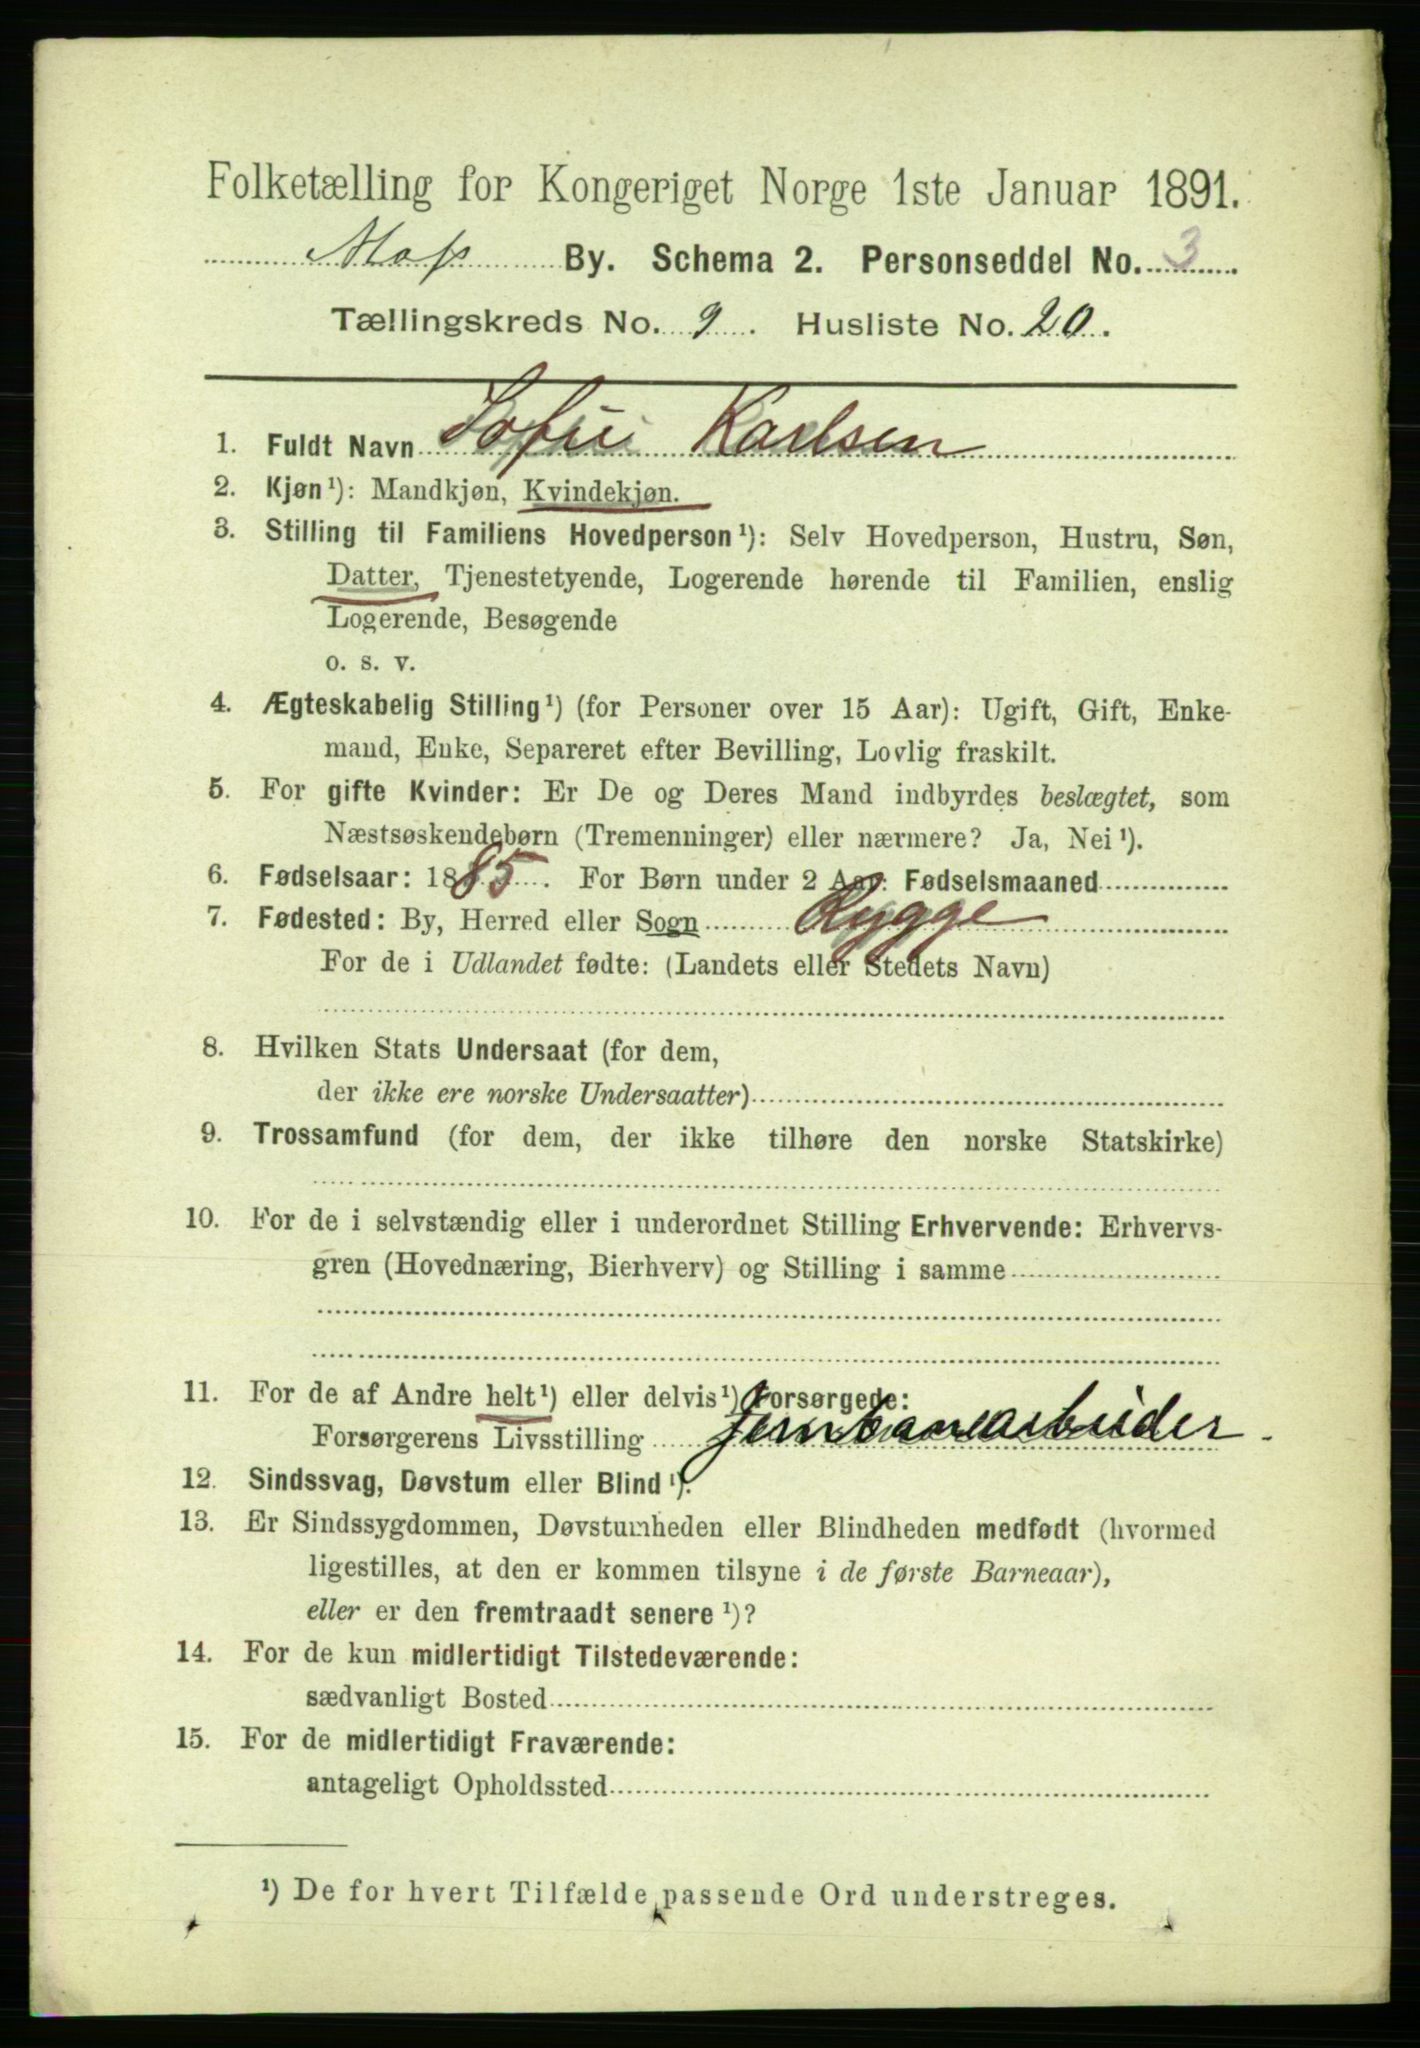 Folketælling for Kongeriget Norge 1ste Januar 1891.
Moss By. Schema 2. Personseddel No. 3
Tællingskreds No. 9. Husliste No. 20.
1. Fuldt Navn Sofie Karlsen
2. Kjøn¹): Mandkjøn, Kvindekjøn.
3. Stilling til Familiens Hovedperson¹): Selv Hovedperson, Hustru, Søn,
Datter, Tjenestetyende, Logerende hørende til Familien, enslig
Logerende, Besøgende
o. s. v.
4. Ægteskabelig Stilling¹) (for Personer over 15 Aar): Ugift, Gift, Enke-
mand, Enke, Separeret efter Bevilling, Lovlig fraskilt.
5. For gifte Kvinder: Er De og Deres Mand indbyrdes beslægtet, som
Næstsøskendebørn (Tremenninger) eller nærmere? Ja, Nei¹).
6. Fødselsaar: 1885. For Børn under 2 Aar: Fødselsmaaned
7. Fødested: By, Herred eller Sogn Rygge
For de i Udlandet fødte: (Landets eller Stedets Navn)
8. Hvilken Stats Undersaat (for dem,
der ikke ere norske Undersaatter)
9. Trossamfund (for dem, der ikke tilhøre den norske Statskirke)
10. For de i selvstændig eller i underordnet Stilling Erhvervende: Erhvervs-
gren (Hovednæring, Bierhverv) og Stilling i samme
11. For de af Andre helt¹) eller delvis¹) Forsørgede:
Forsørgerens Livsstilling Jernbanearbeider.
12. Sindssvag, Døvstum eller Blind¹).
13. Er Sindssygdommen, Døvstumheden eller Blindheden medfødt (hvormed
ligestilles, at den er kommen tilsyne i de første Barneaar),
eller er den fremtraadt senere¹)?
14. For de kun midlertidigt Tilstedeværende:
sædvanligt Bosted
15. For de midlertidigt Fraværende:
antageligt Opholdssted
¹) De for hvert Tilfælde passende Ord understreges.